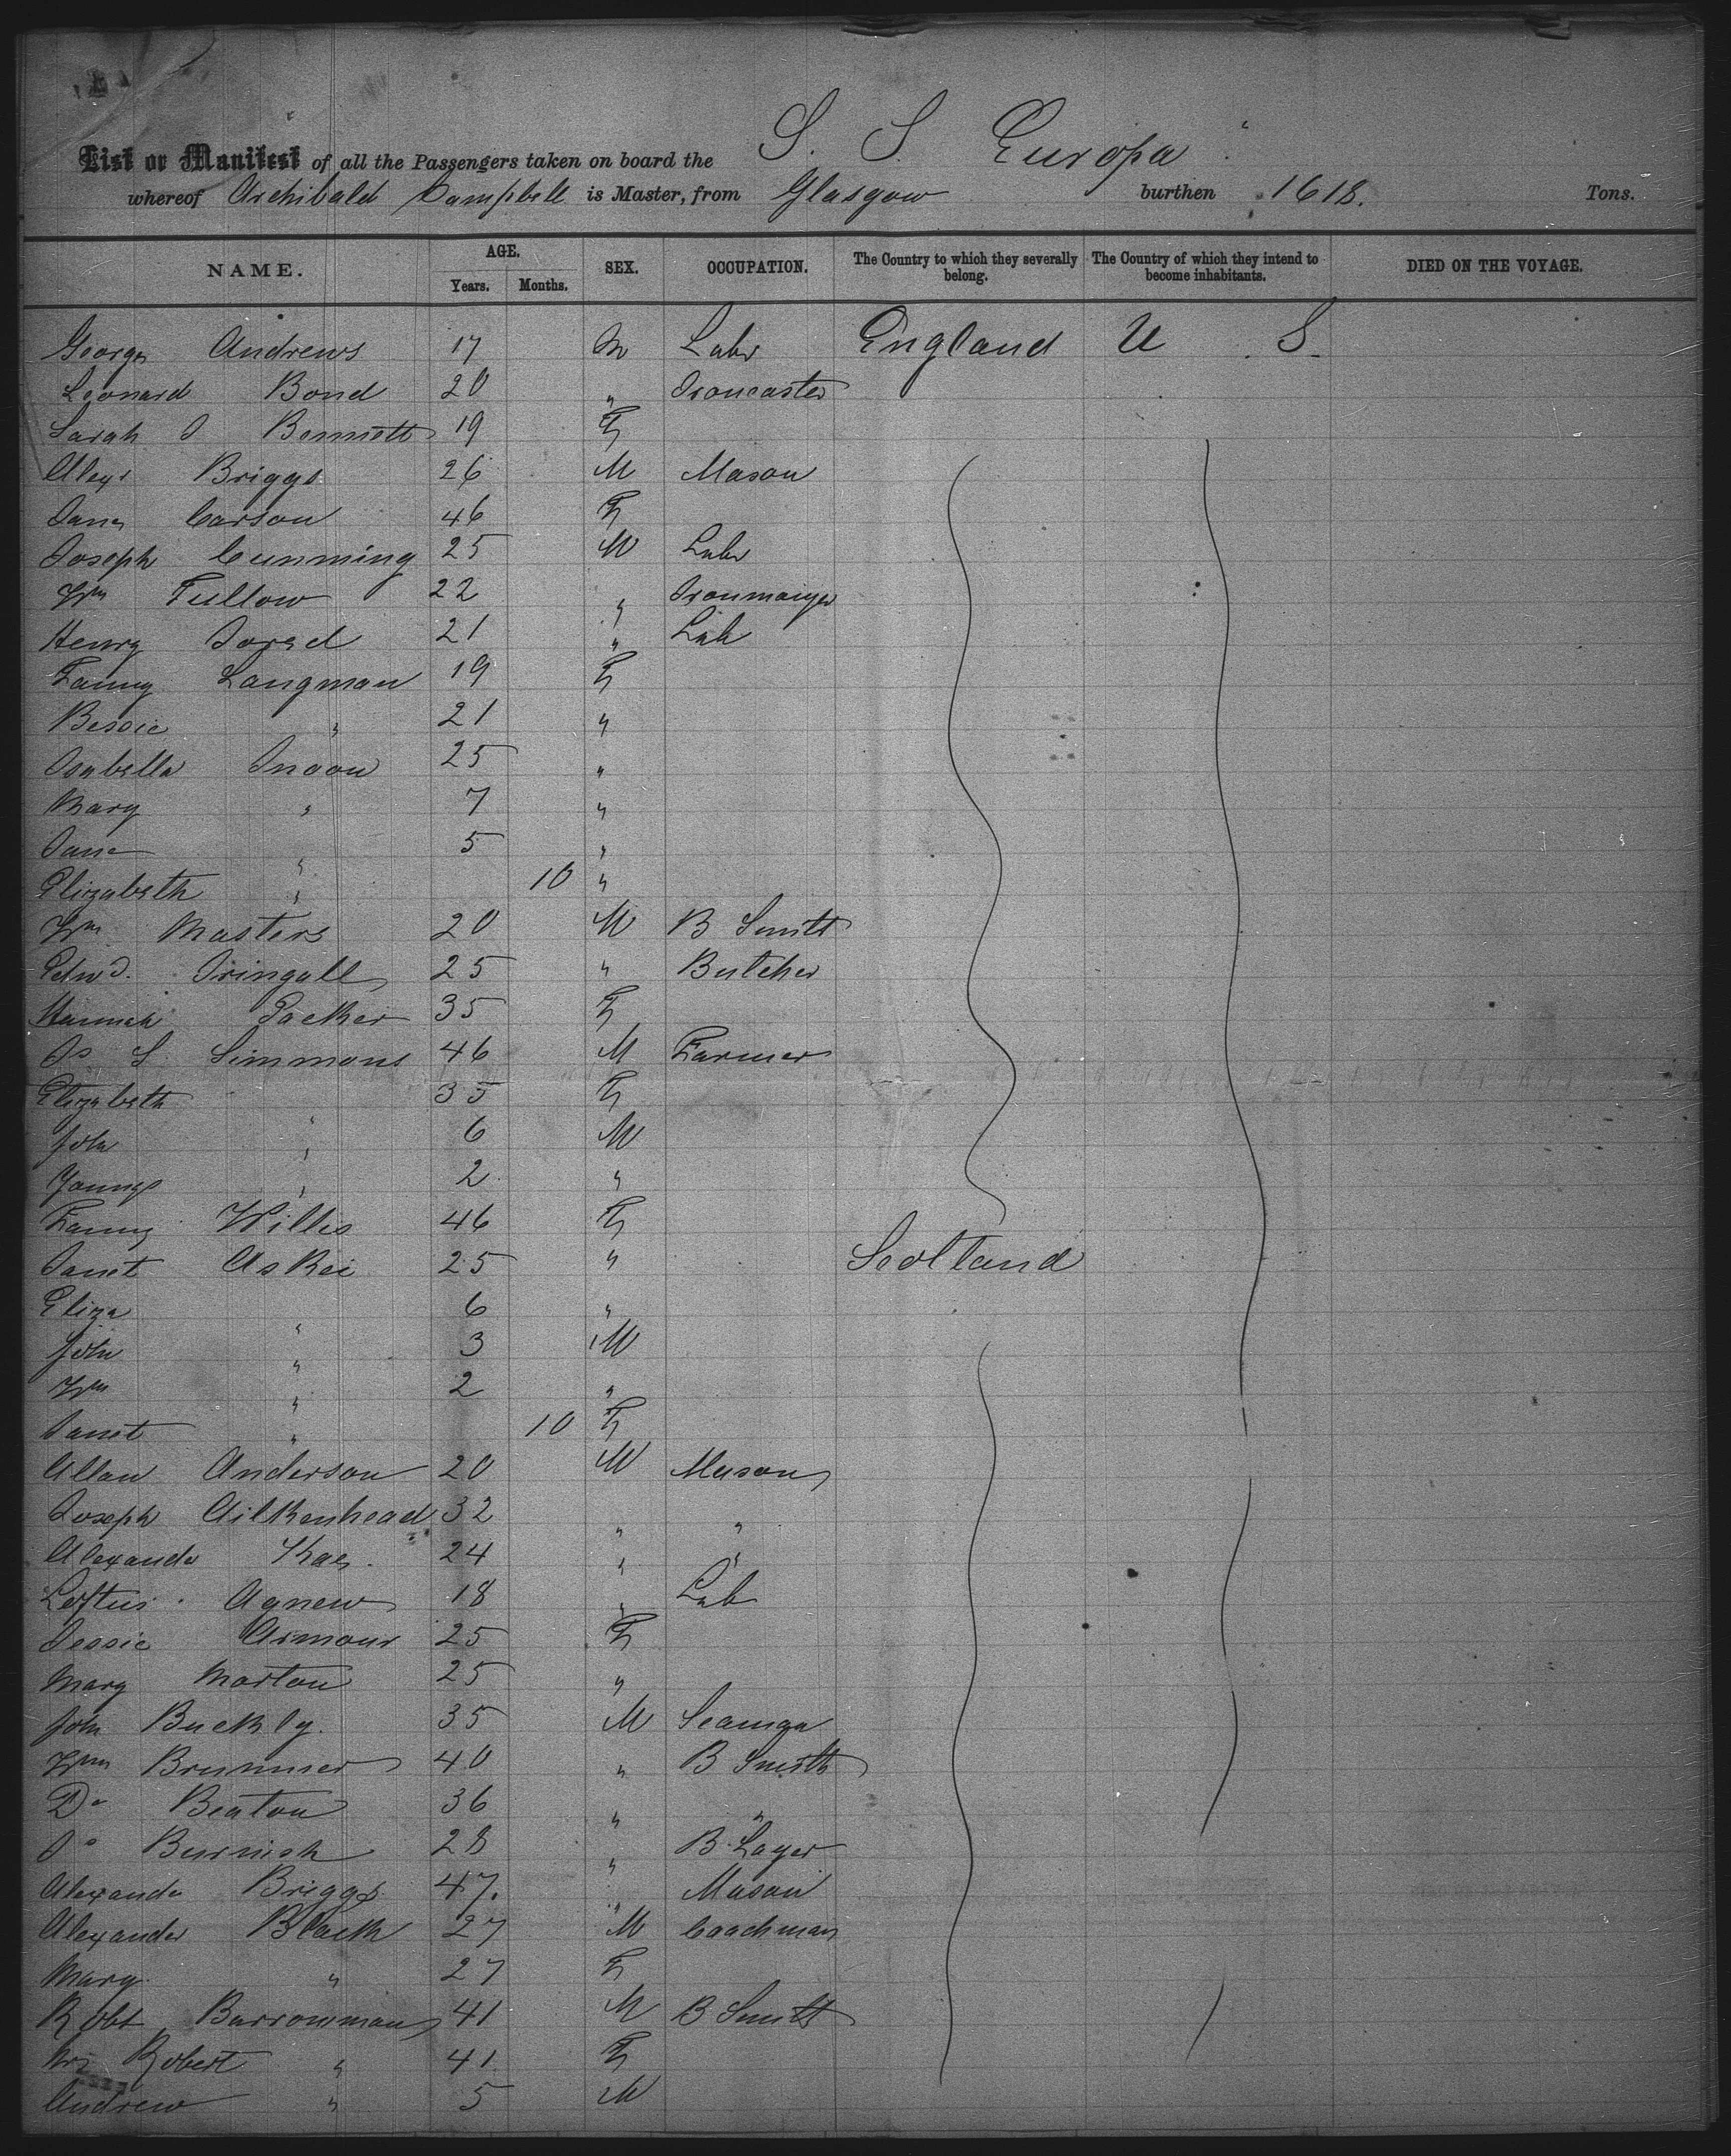 List or Manifest of all the Passengers taken on board the S. S. Europa
whereof Archibald Campbell is Master, from Glasgow burthen 1618. Tons.
NAME. AGE. Years. Months. SEX. OCCUPATION. The Country to which they severally belong. The Country of which they intend to become inhabitants. DIED ON THE VOYAGE.
George Andrews 17 M Labr England U S.
Leonard Bond 20 " Ironcaster
Sarah J Bennett 19 F
Alexr Briggs 26 M Mason
Jane Carson 46 F
Joseph Cumming 25 M Labr
Wm Fullow 22 " Ironmonger
Henry 21 " Lab
Fanny Langman 19 F
Bessie " 21 "
Isabella 25 "
Mary " 7 "
Jane " 5 "
Elizabeth " 10 "
Wm Masters 20 M B Smith
Edwd. 25 " Butcher
Hannah Packer 35 F
Js S Simmons 46 M Farmer
Elizabeth " 35 F
John " 6 M
Young " 2 "
Fanny Willis 46 F
Janet Askei 25 " Scotland
Eliza " 6 "
John " 3 M
Wm " 2 "
Janet " 10 F
Allan Anderson 20 M Mason
Joseph Aitkenhead 32 " "
Alexander 24 " "
Loftus Agnew 18 " Lab
Jessie Armour 25 F
Mary Morton 25 "
John Buckly. 35 M Seaman
Wm Brunner 40 " B Smith
Do Beaton 36 " "
Jo Burnish 28 " B. Layer
Alexander Briggs 47. " Mason
Alexander Black 27 M Coachman
Mary " 27 F
Robt Barrowman 41 M B Smith
Mrs Robert " 41 F
Andrew " 5 M